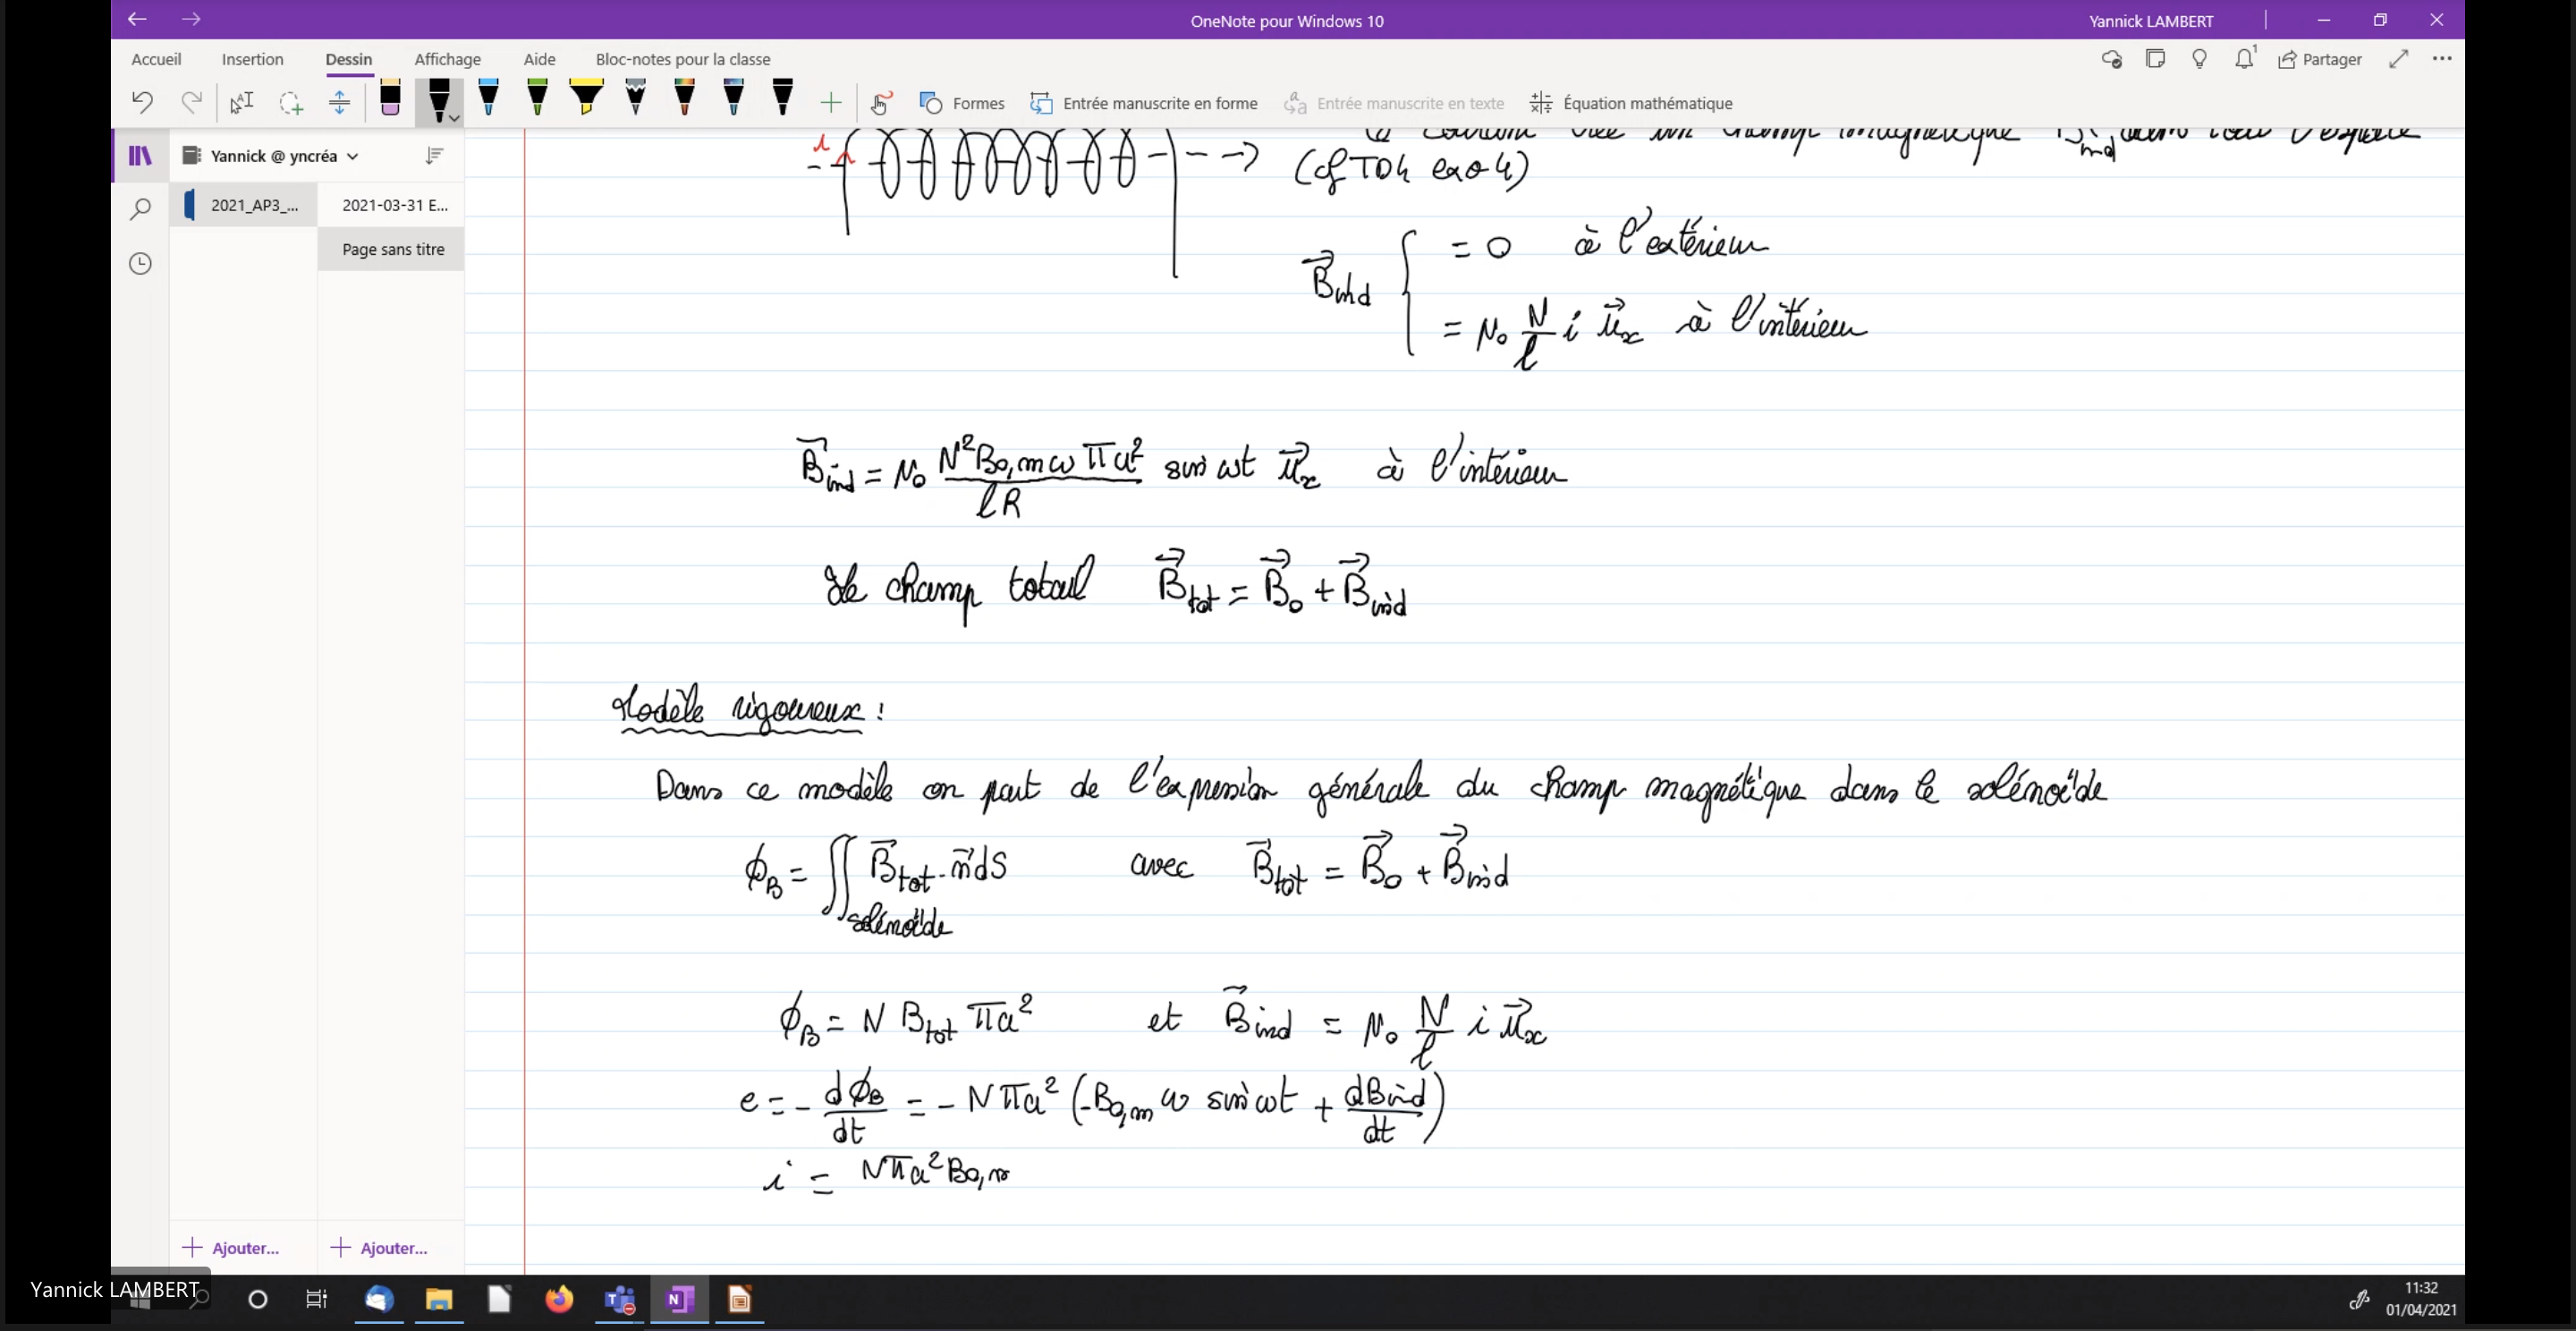 OneNote pour Windows 10
Yannick LAMBERT
Accueil Insertion Dessin Affichage Aide Bloc-notes pour la classe
1 Partager
Formes Entrée manuscrite en forme Entrée manuscrite en texte Équation mathématique
Yannick @ yncréa
2021_AP3_... 2021-03-31 E...
Page sans titre
i
courant crée un champ magnétique B⃗ind dans tout l'espace
(cf TD4 exo 4)
B⃗ind { = 0 à l'extérieur
= μ₀ N/l i u⃗x à l'intérieur
B⃗ind = μ₀ N²B₀,mω πa²/lR sin ωt u⃗x à l'intérieur
Le champ total B⃗tot = B⃗₀ + B⃗ind
Modèle rigoureux :
Dans ce modèle on part de l'expression générale du champ magnétique dans le solénoïde
ϕB = ∬solénoïde B⃗tot · n⃗ dS avec B⃗tot = B⃗₀ + B⃗ind
ϕB = N Btot πa² et B⃗ind = μ₀ N/l i u⃗x
e = - dϕB/dt = - Nπa² (-B₀,m ω sin ωt + dBind/dt)
i = Nπa²B₀,m
Ajouter... Ajouter...
Yannick LAMBERT
11:32
01/04/2021